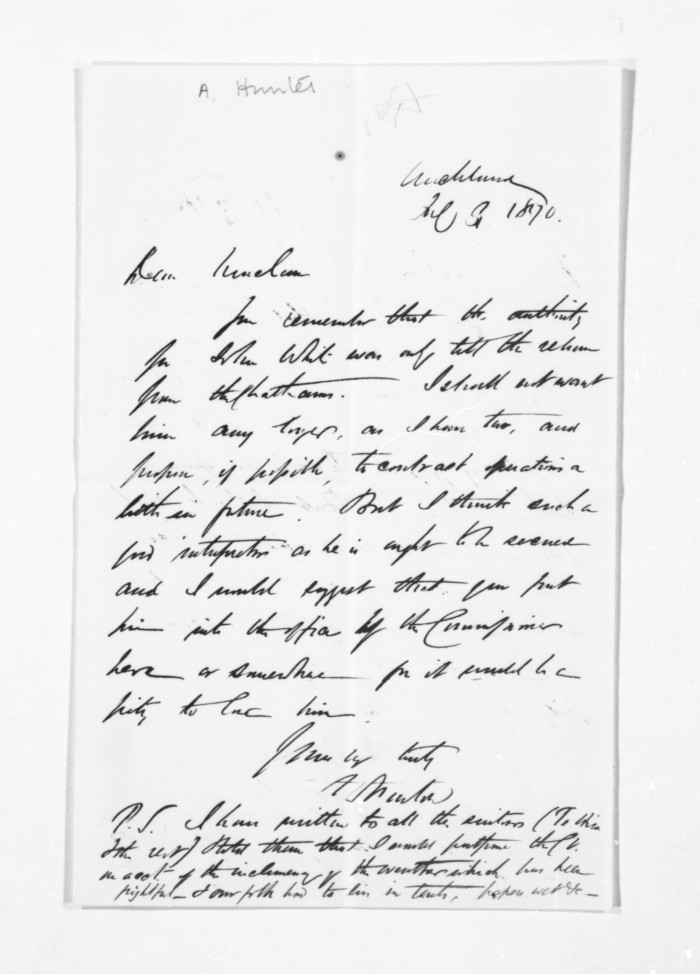 A. Hunter
Auckland
July 9 1870.
Dear Maclean
You remember that the authority
for John White was only till the return
from the Chathams. I should not want
him any longer, as I have two, and
propose, if possible, to contract operations a
little in future. But I think such a
good interpreter as he is ought to be secured
and I would suggest that you put
him into the office of the Commissioner
here or somewhere for it would be a
pity to lose him.
Yours very truly
P.S. I have written to all the suitors (Te
& the rest) & told them that I would postpone the Ct.
on acct. of the inclemency of the weather which has been
frightful - & our folk had to live in tents, papers wet &c -